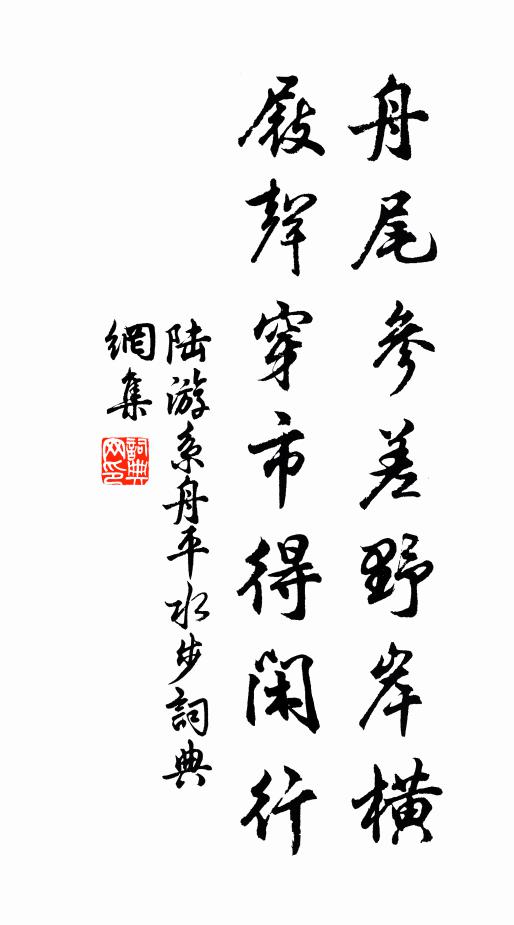 舟尾參差野岸橫
屐聲穿市得閑行
陆游系舟平水步詞典
網集
詞典
网印